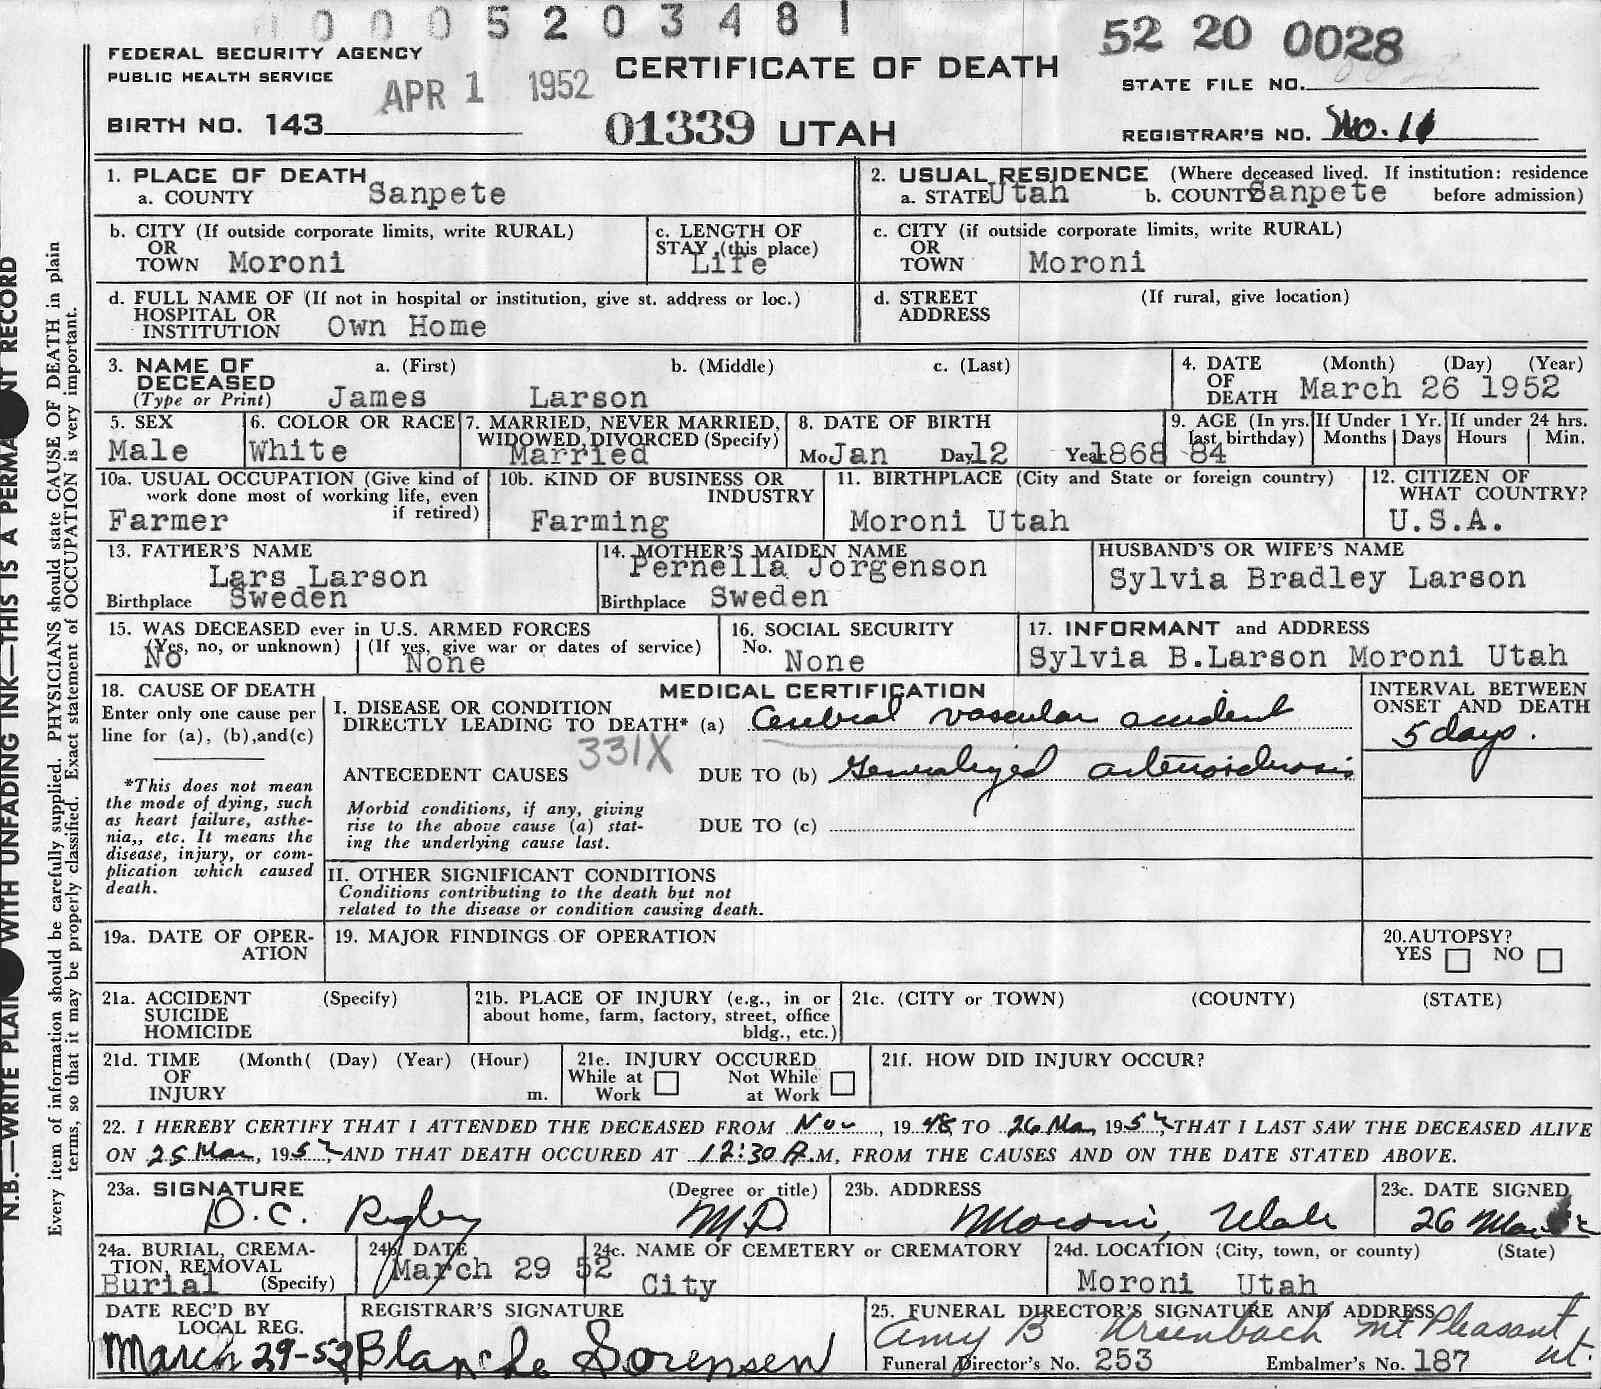 0 0 0 5 2 0 3 4 8 1
52 20 0028
FEDERAL SECURITY AGENCY
PUBLIC HEALTH SERVICE
APR 1 1952
CERTIFICATE OF DEATH
STATE FILE NO.
BIRTH NO. 143
01339 UTAH
REGISTRAR'S NO. No. 11
1. PLACE OF DEATH
a. COUNTY Sanpete
2. USUAL RESIDENCE (Where deceased lived. If institution: residence before admission)
a. STATE Utah b. COUNTY Sanpete
b. CITY (If outside corporate limits, write RURAL)
OR
TOWN Moroni
c. LENGTH OF
STAY (this place)
Life
c. CITY (if outside corporate limits, write RURAL)
OR
TOWN Moroni
d. FULL NAME OF (If not in hospital or institution, give st. address or loc.)
HOSPITAL OR
INSTITUTION Own Home
d. STREET (If rural, give location)
ADDRESS
3. NAME OF DECEASED (Type or Print)
a. (First) b. (Middle) c. (Last)
James Larson
4. DATE OF DEATH (Month) (Day) (Year)
March 26 1952
5. SEX
Male
6. COLOR OR RACE
White
7. MARRIED, NEVER MARRIED,
WIDOWED, DIVORCED (Specify)
Married
8. DATE OF BIRTH
Mo Jan Day 12 Year 1868
9. AGE (In yrs. last birthday)
84
If Under 1 Yr. Months Days
If under 24 hrs. Hours Min.
10a. USUAL OCCUPATION (Give kind of
work done most of working life, even
if retired)
Farmer
10b. KIND OF BUSINESS OR
INDUSTRY
Farming
11. BIRTHPLACE (City and State or foreign country)
Moroni Utah
12. CITIZEN OF
WHAT COUNTRY?
U.S.A.
13. FATHER'S NAME
Lars Larson
Birthplace Sweden
14. MOTHER'S MAIDEN NAME
Pernella Jorgenson
Birthplace Sweden
HUSBAND'S OR WIFE'S NAME
Sylvia Bradley Larson
15. WAS DECEASED ever in U.S. ARMED FORCES
(Yes, no, or unknown) (If yes, give war or dates of service)
No None
16. SOCIAL SECURITY
No. None
17. INFORMANT and ADDRESS
Sylvia B.Larson Moroni Utah
18. CAUSE OF DEATH
Enter only one cause per
line for (a), (b),and(c)
*This does not mean
the mode of dying, such
as heart failure, asthe-
nia,, etc. It means the
disease, injury, or com-
plication which caused
death.
MEDICAL CERTIFICATION
I. DISEASE OR CONDITION
DIRECTLY LEADING TO DEATH* (a) Cerebral vascular accident
331X
ANTECEDENT CAUSES DUE TO (b) Generalized arteriosclerosis
Morbid conditions, if any, giving
rise to the above cause (a) stat-
ing the underlying cause last.
DUE TO (c)
INTERVAL BETWEEN
ONSET AND DEATH
5 days.
II. OTHER SIGNIFICANT CONDITIONS
Conditions contributing to the death but not
related to the disease or condition causing death.
19a. DATE OF OPER-
ATION
19. MAJOR FINDINGS OF OPERATION
20.AUTOPSY?
YES NO
21a. ACCIDENT (Specify)
SUICIDE
HOMICIDE
21b. PLACE OF INJURY (e.g., in or
about home, farm, factory, street, office
bldg., etc.)
21c. (CITY or TOWN) (COUNTY) (STATE)
21d. TIME (Month( (Day) (Year) (Hour)
OF
INJURY m.
21e. INJURY OCCURED
While at Work Not While at Work
21f. HOW DID INJURY OCCUR?
22. I HEREBY CERTIFY THAT I ATTENDED THE DECEASED FROM Nov, 1948, TO 26 Mar, 1952, THAT I LAST SAW THE DECEASED ALIVE
ON 25 Mar, 1952, AND THAT DEATH OCCURED AT 12:30 A.M, FROM THE CAUSES AND ON THE DATE STATED ABOVE.
23a. SIGNATURE (Degree or title)
D.C. Rigby M.D.
23b. ADDRESS
Moroni, Utah
23c. DATE SIGNED
26 Mar 52
24a. BURIAL, CREMA-
TION, REMOVAL
Burial (Specify)
24b. DATE
March 29 52
24c. NAME OF CEMETERY or CREMATORY
City
24d. LOCATION (City, town, or county) (State)
Moroni Utah
DATE REC'D BY
LOCAL REG.
March 29-52
REGISTRAR'S SIGNATURE
Blanche Sorensen
25. FUNERAL DIRECTOR'S SIGNATURE AND ADDRESS
Amy B Ursenbach Mt Pleasant Ut.
Funeral Director's No. 253 Embalmer's No. 187
N.B.—WRITE PLAI WITH UNFADING INK—THIS IS A PERMA NT RECORD
Every item of information should be carefully supplied. PHYSICIANS should state CAUSE OF DEATH in plain
terms, so that it may be properly classified. Exact statement of OCCUPATION is very important.